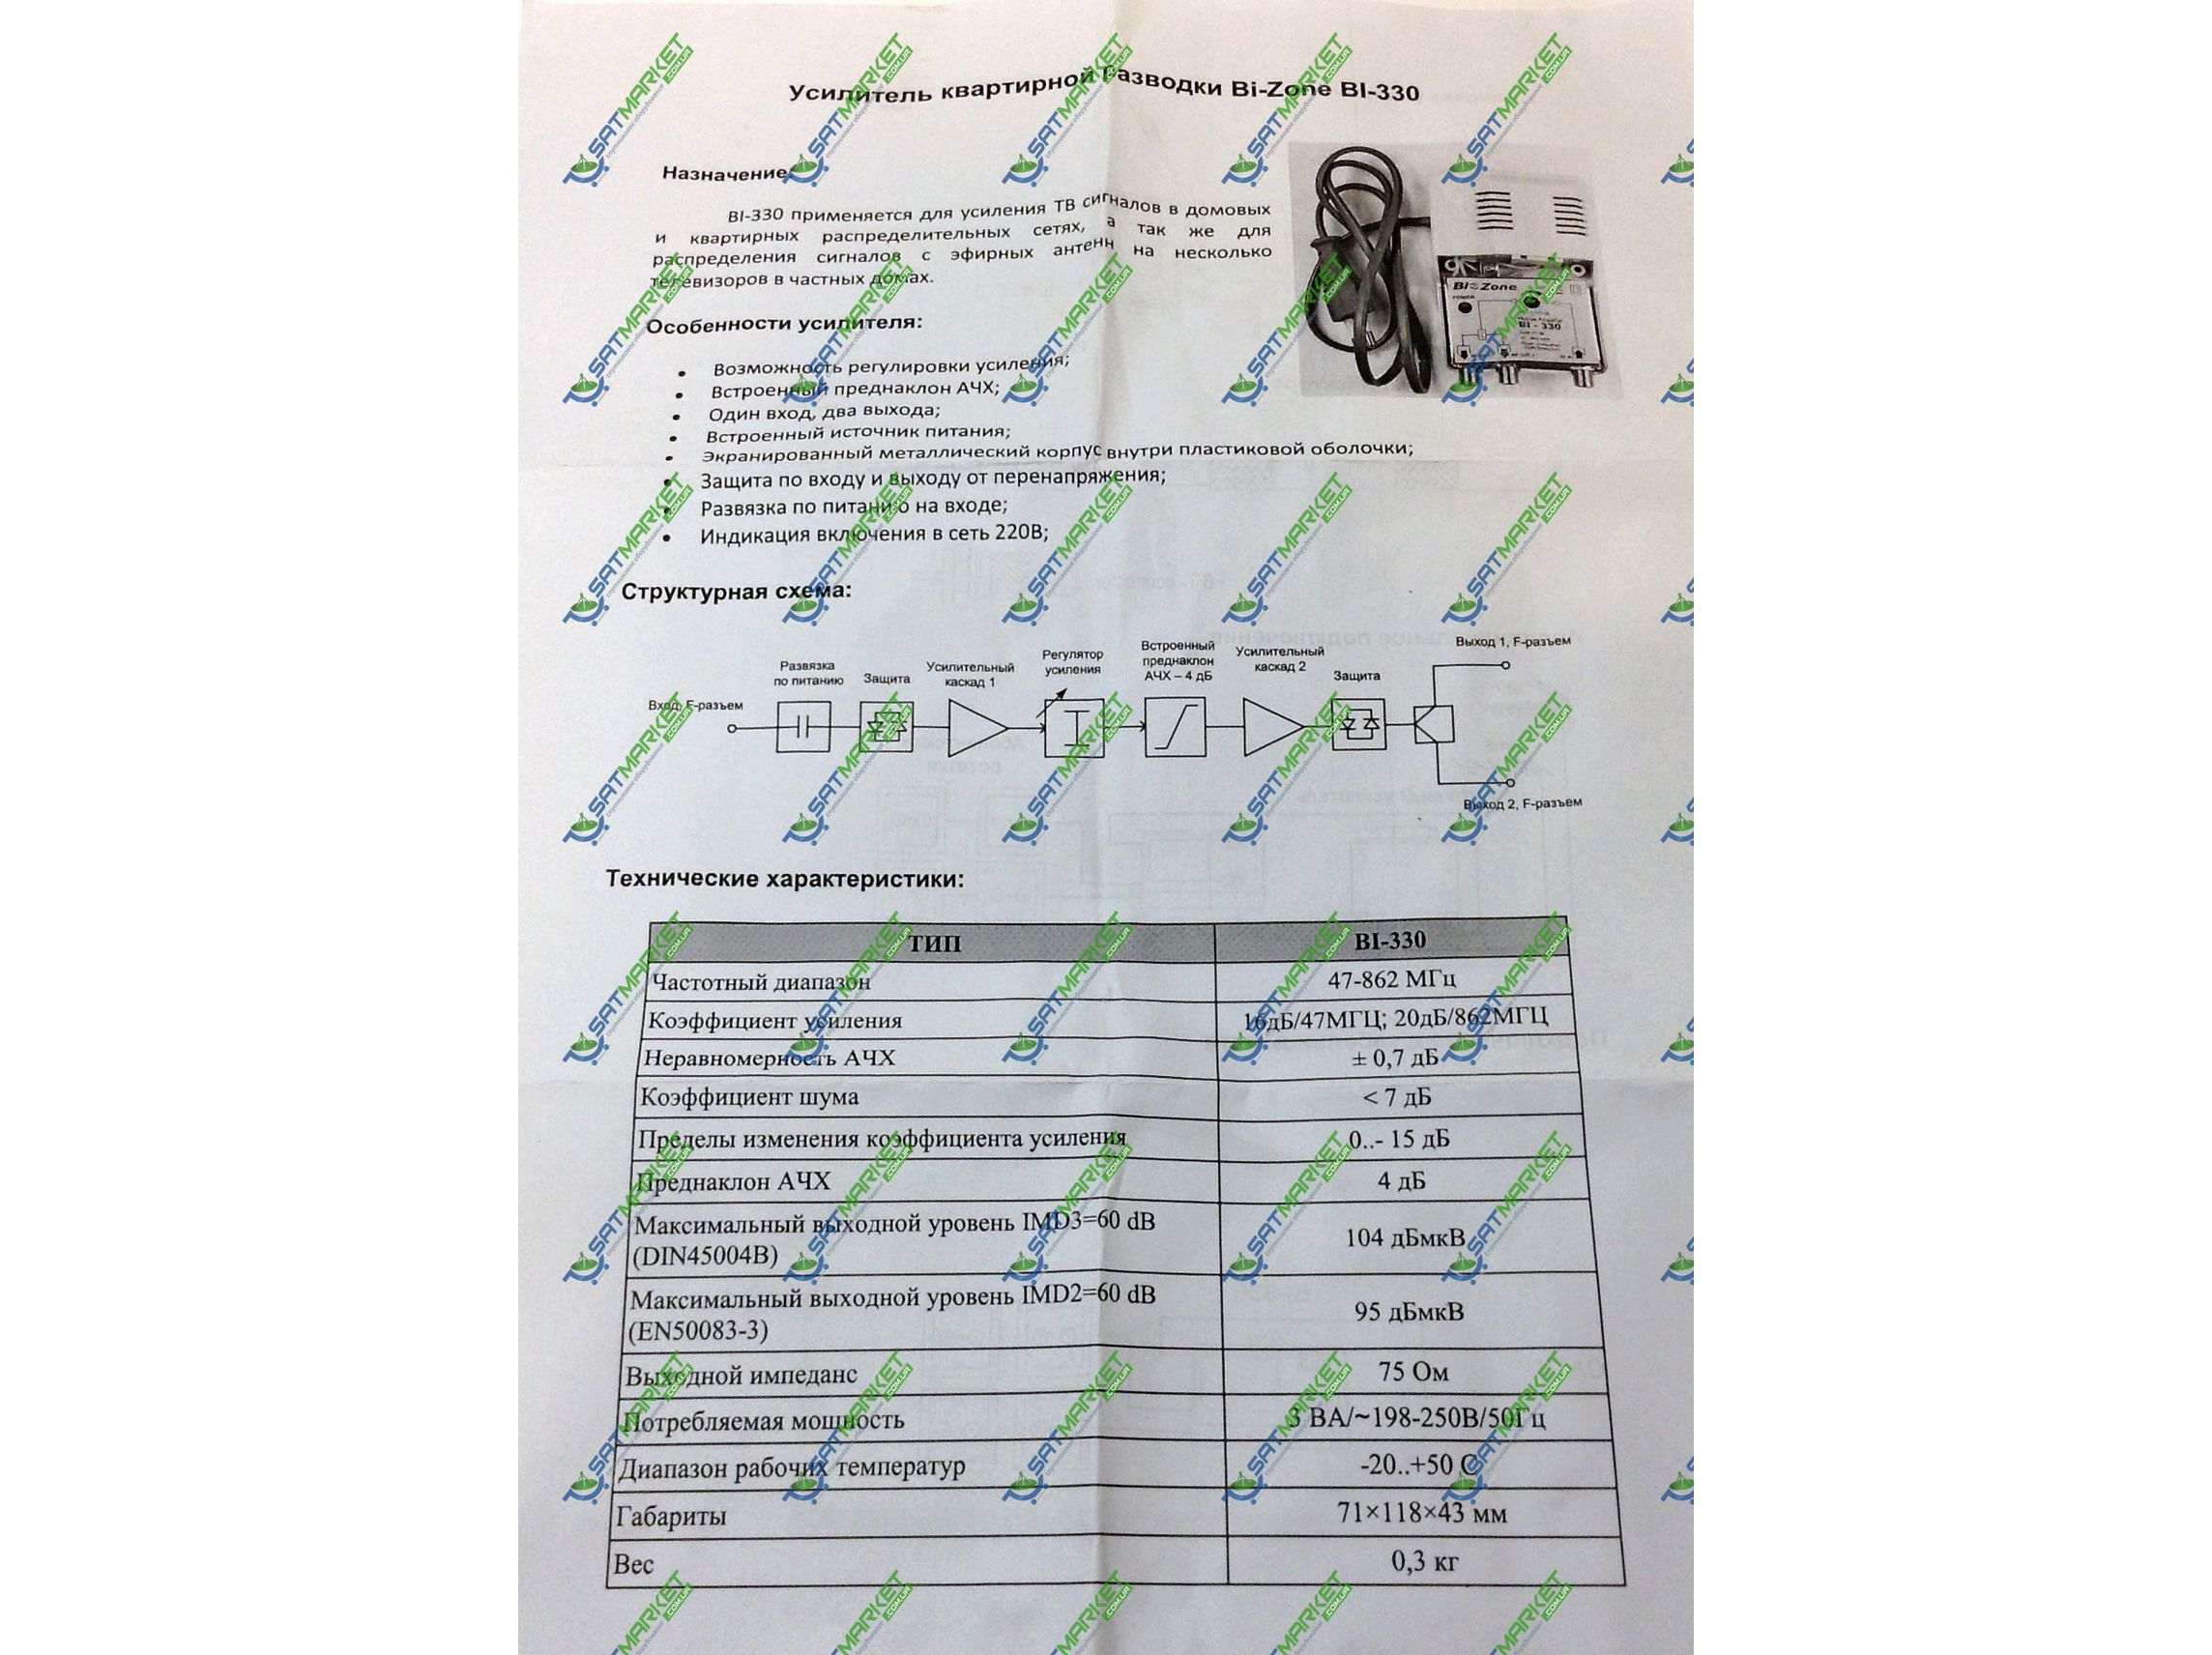 Усилитель квартирной разводки Bi-Zone BI-330
Назначение:
BI-330 применяется для усиления ТВ сигналов в домовых
и квартирных распределительных сетях, а так же для
распределения сигналов с эфирных антенн на несколько
телевизоров в частных домах.
Bi-Zone
POWER
BI - 330
Особенности усилителя:
• Возможность регулировки усиления;
• Встроенный преднаклон АЧХ;
• Один вход, два выхода;
• Встроенный источник питания;
• Экранированный металлический корпус внутри пластиковой оболочки;
• Защита по входу и выходу от перенапряжения;
• Развязка по питанию на входе;
• Индикация включения в сеть 220В;
Структурная схема:
Вход, F-разъем
Развязка
по питанию
Защита
Усилительный
каскад 1
Регулятор
усиления
Встроенный
преднаклон
АЧХ – 4 дБ
Усилительный
каскад 2
Защита
Выход 1, F-разъем
Выход 2, F-разъем
Технические характеристики:
ТИП BI-330
Частотный диапазон 47-862 МГц
Коэффициент усиления 16дБ/47МГЦ; 20дБ/862МГЦ
Неравномерность АЧХ ± 0,7 дБ
Коэффициент шума < 7 дБ
Пределы изменения коэффициента усиления 0..- 15 дБ
Преднаклон АЧХ 4 дБ
Максимальный выходной уровень IMD3=60 dB
(DIN45004B) 104 дБмкВ
Максимальный выходной уровень IMD2=60 dB
(EN50083-3) 95 дБмкВ
Выходной импеданс 75 Ом
Потребляемая мощность 3 ВА/~198-250В/50Гц
Диапазон рабочих температур -20..+50 С
Габариты 71×118×43 мм
Вес 0,3 кг
SATMARKET
.COM.UA